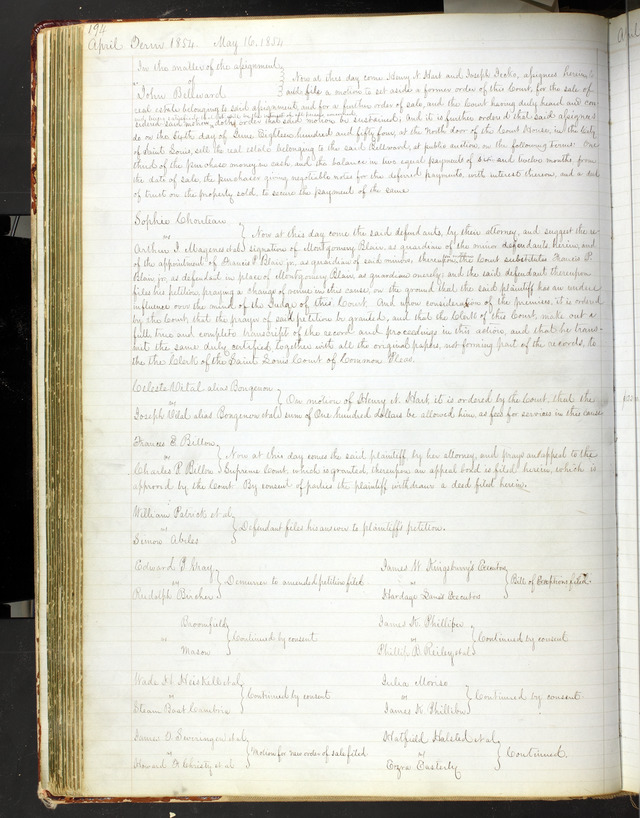 194
April Term 1854. May 16. 1854
In the matter of the assignment
of
John Bellward
Now at this day come Henry N. Hart and Joseph assignees herein &
and file a motion to set aside a former order of this Court, for the sale of
real estate belonging to said assignment, and for a further order of sale, and the Court having duly heard and con
sidered said motion, doth order that said motion be sustained; And it is further ordered that said assignees
do on the eighth day of June Eighteen hundred and fifty four, at the North door of the Court House, in the City
of Saint Louis, sell the real estate belonging to the said Bellward, at public auction, on the following terms: One
third of the purchase money in cash and the balance in two equal payments of six and twelve months from
the date of sale, the purchaser giving negotiable notes for the deferred payments, with interest thereon, and a deed
of trust on the property sold, to secure the payment of the same
Sophie Chouteau
vs
Arthur I. Magenis et al
Now at this day come the said defendants, by their attorney, and suggest the re-
signation of Montgomery Blair, as guardian of the minor defendants herein, and
of the appointment of Francis P. Blair jr, as guardian of said minors, thereupon the Court substitutes Francis P.
Blair jr, as defendant in place of Montgomery Blair as guardian merely; and the said defendant thereupon
files his petition, praying a change of venue in this cause, on the ground that the said plaintiff has an undue
influence over the mind of the Judge of this Court. And upon consideration of the premises, it is ordered
by the Court, that the prayer of said petition be granted, and that the Clerk of this Court, make out a
full true and complete transcript of the record and proceedings in this action, and that he trans-
mit the same duly certified, together with all the original papers, not forming part of the records, to
the the Clerk of the Saint Louis Court of Common Pleas.
Celeste Vital alias Bongenon
vs
Joseph Vital alias Bongenon et al
On motion of Henry N. Hart, it is ordered by the Court, that the
sum of One hundred dollars be allowed him, as fees for services in this cause
Frances E. Billon
vs
Charles P. Billon
Now at this day comes the said plaintiff by her attorney, and prays an appeal to the
Supreme Court which is granted, thereupon an appeal bond is filed herein, which is
approved by the Court. By consent of parties the plaintiff withdraws a deed filed herein.
William Patrick et al
vs
Simon Abeles
Defendant files his answer to plaintiff's petition.
Edward J. Gray
vs
Rudolph Bircher
Demurrer to amended petition filed
James W. Kingsbury's Executors
vs
Hardage Lane's Executors
Bill of Exceptions filed
Broomfield
vs
Mason
Continued by consent
James K. Phillips
vs
Phillip B. Reiley et al
Continued by consent
Wade H. Heiskell et al
vs
Steam Boat Cambria
Continued by consent
Julia Morise
vs
James K. Phillibu
Continued by consent
James O. Swearingen et al
vs
Howard F. Christy et al
Motion for new order of sale filed
Hatfield Halsted et al
vs
Ezra Easterly
Continued.